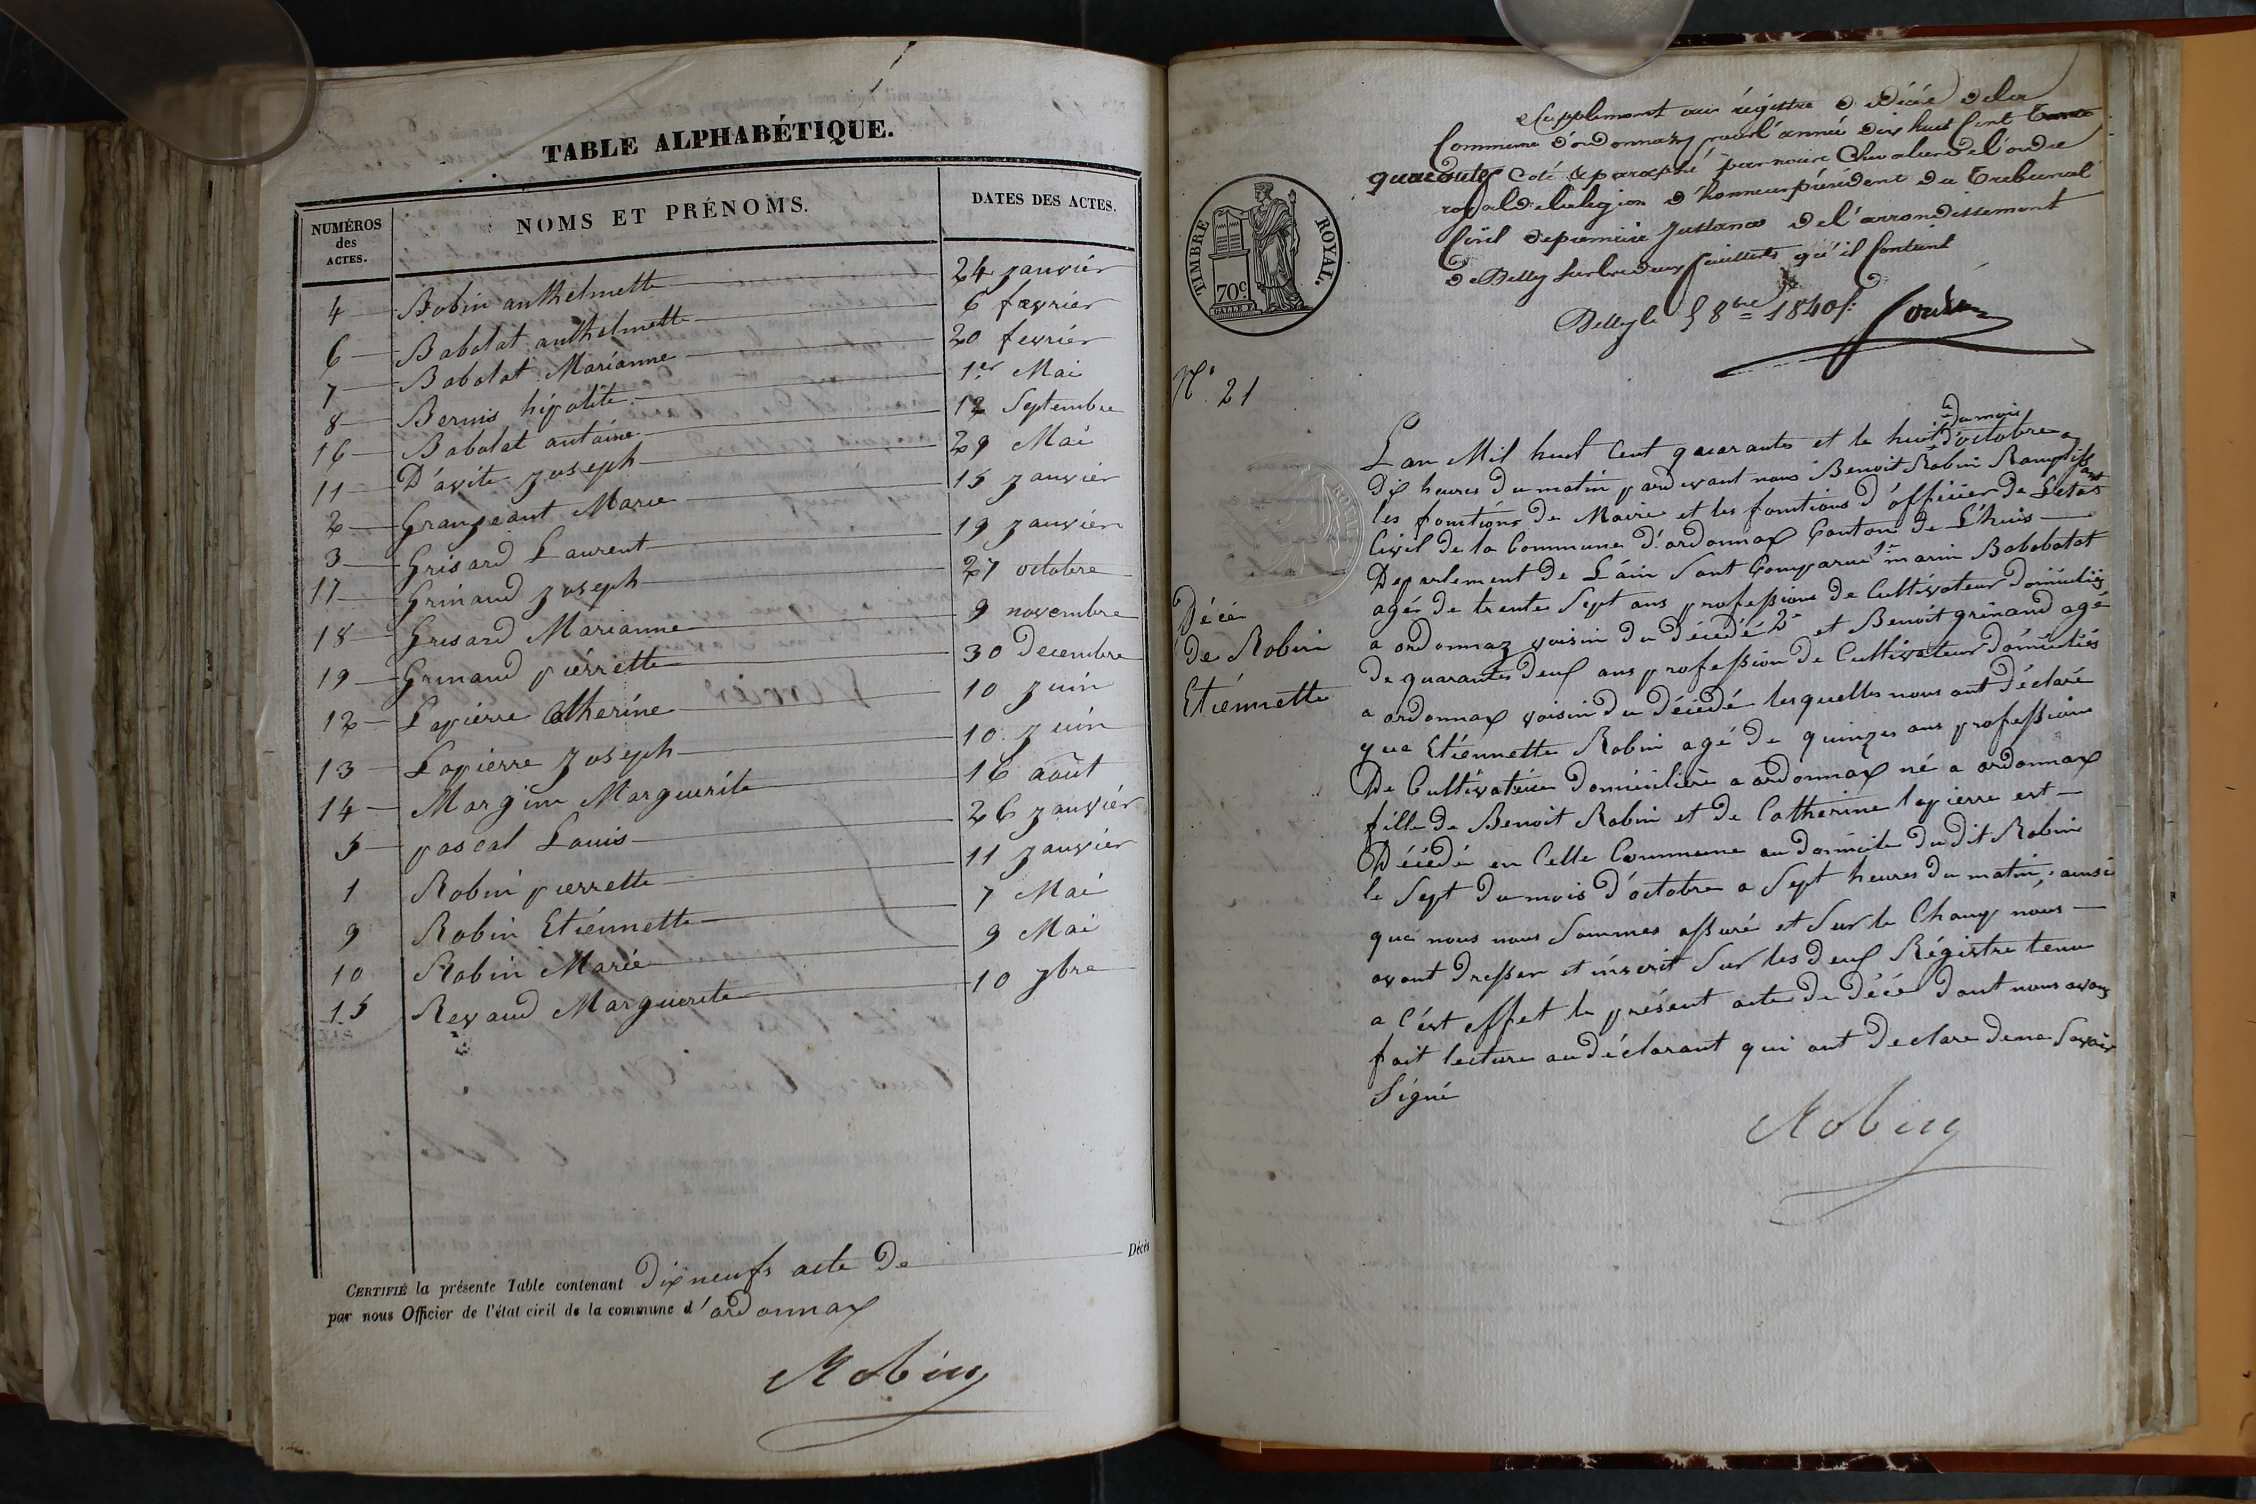 TABLE ALPHABÉTIQUE.
NUMÉROS des ACTES. NOMS ET PRÉNOMS. DATES DES ACTES.
4 Bobin anthelmette 24 janvier
6 Babolat anthelmette 6 fevrier
7 Babolat Marianne 20 fevrier
8 Bernis hipolite 1er Mai
16 Babolat antoine 12 Septembre
11 D'avite joseph 29 Mai
2 Granjeant Marie 15 janvier
3 Grisard Laurent 19 janvier
17 Grinand joseph 27 octobre
18 Grisard Marianne 9 novembre
19 Grinand pierrette 30 decembre
12 Lapierre Catherine 10 juin
13 Lapierre joseph 10 juin
14 Margin Marguerite 16 août
5 pascal Louis 26 janvier
1 Robin pierrette 11 janvier
9 Robin Etiennette 7 Mai
10 Robin Marie 9 Mai
15 Revaud Marguerite 10 7bre
CERTIFIÉ la présente Table contenant Dix neufs acte De Décès
par nous Officier de l'état civil de la commune d'ordonnax
Robin
Supplement au régistre de décée de la
Commune d'ordonnaz pour l'année dix huit Cent
quarante Coté & paraphé par nous Chevalier de l'ordre
royal de la legion d'honneur président du Tribunal
Civil de premiere Instance de l'arrondissement
de Belley sur les deux feuillets qu'il Contient
Belley le 5 8bre 1840
TIMBRE ROYAL.
70c.
N° 21
Décée
de Robin
Etiennette
L'an Mil huit Cent quarante et le huit du mois d'octobre a
Dix heures du matin pardevant nous Benoit Robin Ramplissant
les fontions de Maire et les fontions d'officier de L'etat
Civil de la Commune d'ordonnax Canton de L'huis
Departement de L'ain Sont Comparue marin Bobobatat
agés de trente Sept ans profession de Cultivateur Domiciliés
a ordonnaz voisin du décédé 2° et Benoit grinand agé
De quarante Deux ans profession de Cultivateur Domiciliés
a ordonnax voisin du Décedé lesquelles nous ont Déclaré
que Etiennette Robin agé De quinzes ans profession
De Cultivateure Domicilière a ordonnax né a ordonnax
fille de Benoit Robin et de Catherine lapierre est
Décédé en Cette Commune au Domicile du dit Robin
le Sept du mois D'octobre a Sept heures du matin, ainsi
que nous nous Sommes assuré et Sur le Champ nous
avont Dresser et inscrit Sur les deux Régistre tenu
a C'ést effet le présent acte de Décée Dont nous avons
fait lecture au déclarant qui ont Declare de ne Savoir
Signé
Robin